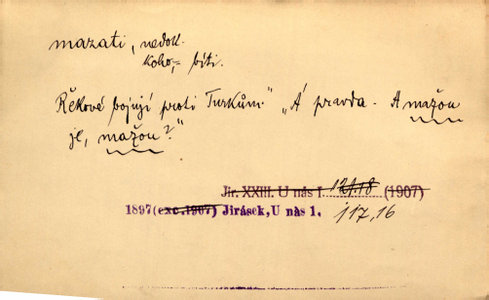 mazati, nedok.
koho, = bíti.
Řekové bojují proti Turkům." „Á pravda. A mažou
je, mažou?"
Jir. XXIII. U nás I. 121.18 (1907)
1897 (exc. 1907) Jirásek, U nás 1. 117,16